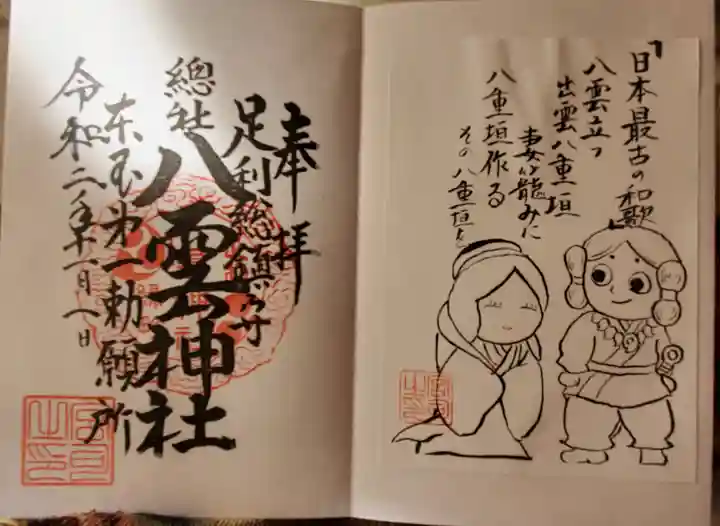 「日本最古の和歌」
八雲立つ
出雲八重垣
妻籠みに
八重垣作る
その八重垣を
奉拝
足利総鎮守
總社
八雲神社
东国第一勅願所
令和二年十一月八日